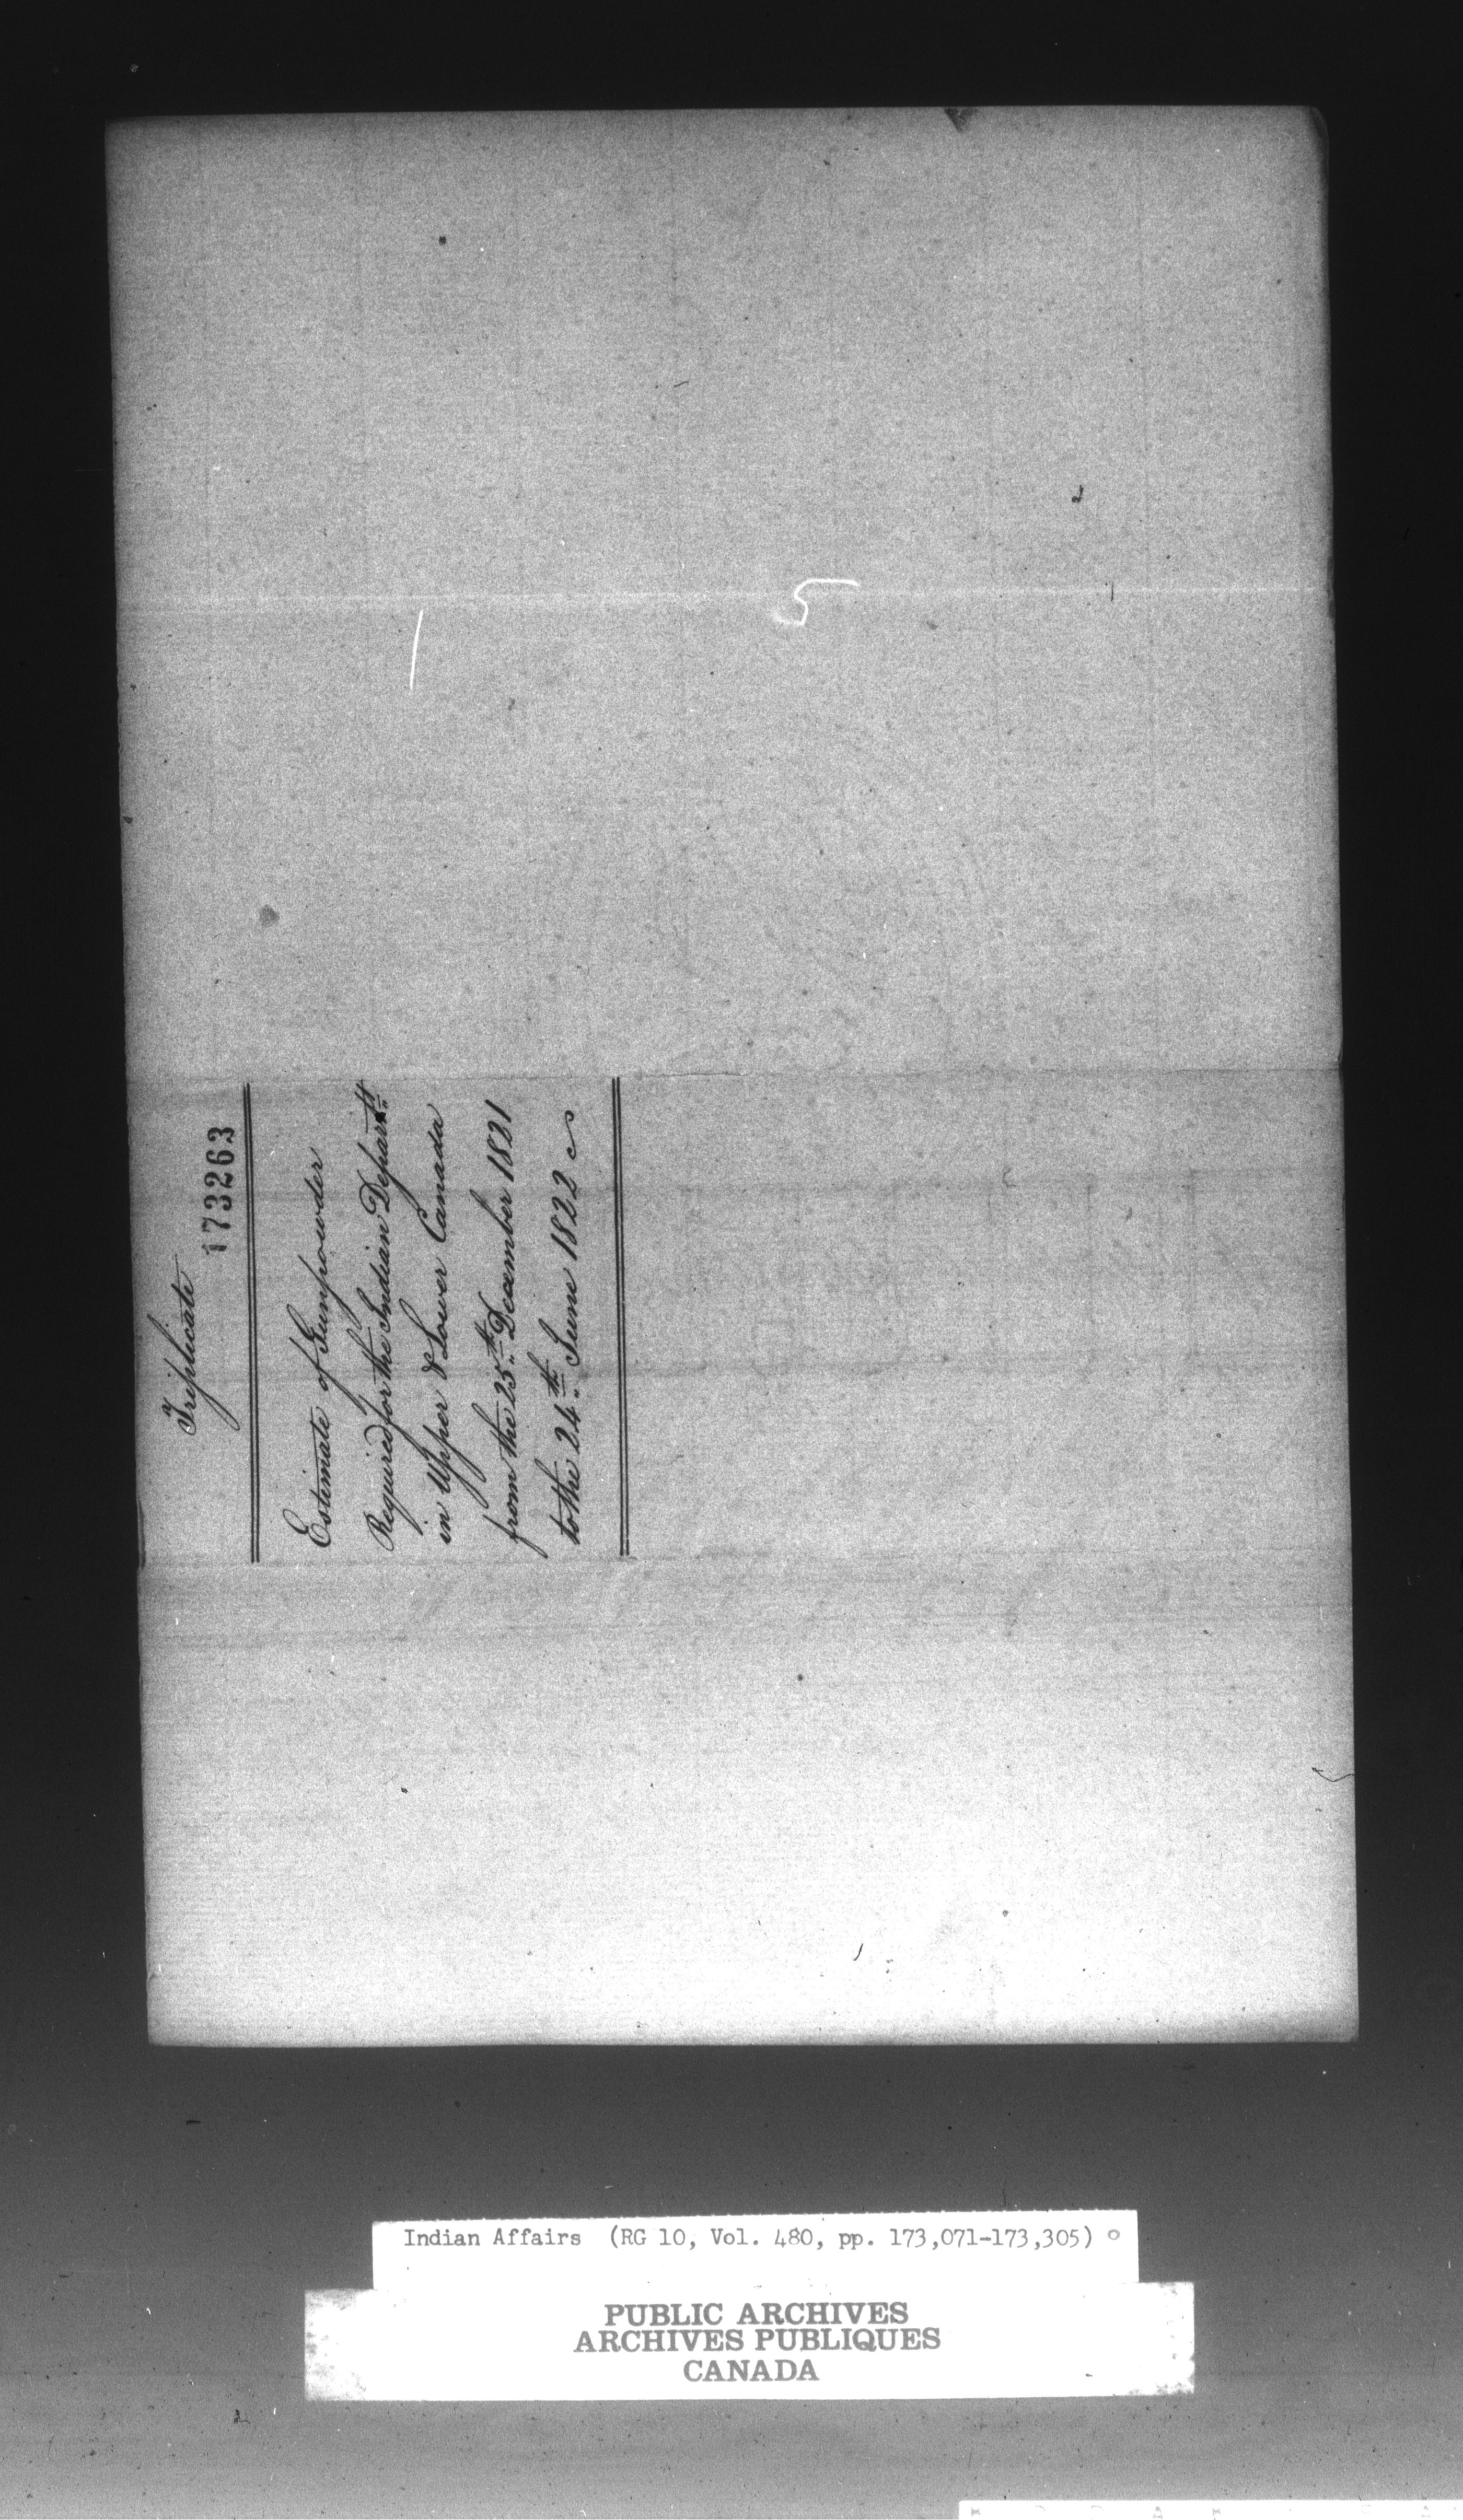 Triplicate
173263
Estimate of Gunpowder
Required for the Indian Departt
in Upper & Lower Canada
from the 25th December 1821
to the 24th June 1822
1 5
Indian Affairs (RG 10, Vol. 480, pp. 173,071-173,305)
PUBLIC ARCHIVES
ARCHIVES PUBLIQUES
CANADA